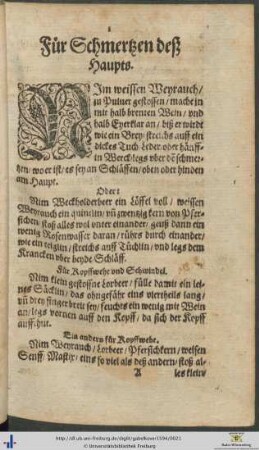 Für Schmertzen deß
Haupts.
NIm weissen Weyrauch/
zu Puluer gestossen / mache jn
mit halb brennen Wein / vnd
halb Eyerklar an / biß er wirdt
wie ein Brey / streichs auff ein
dickes Tuch Leder oder hänff-
in Werck / legs vber dē schmer-
tzen / wo er ist / es sey an Schläffen / oben oder hinden
am Haupt.
Oder:
Nim Weckholderbeer ein Löffel voll / weissen
Weyrauch ein quintlin / vñ zwentzig kern von Pfer-
sichen / stoß alles wol vnter einander / geuß dann ein
wenig Rosenwasser daran / rührs durch einander /
wie ein teiglin / streichs auff Tüchlin / vnd legs dem
Krancken vber beyde Schläff.
Für Kopffwehe vnd Schwindel.
Nim klein gestossene Lorbeer / fülle damit ein lei-
nes Säcklin / das ohngefähr eins viertheils lang /
vñ drey finger breit sey / feuchts ein wenig mit Wein
an / legs vornen auff den Kopff / da sich der Kopff
auffthut.
Ein anders für Kopffwehe.
Nim Weyrauch / Lorbeer / Pfersichkern / weissen
Senff / Mastix / eins so viel als deß andern / stoß al-
A
les klein/
http://dl.ub.uni-freiburg.de/diglit/gabelkover1594/0023
© Universitätsbibliothek Freiburg
Baden-Württemberg